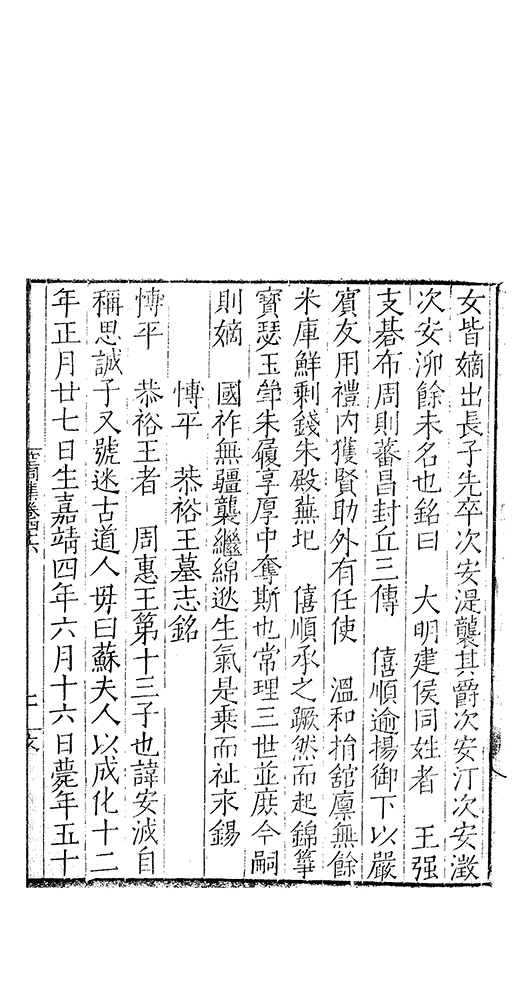 女皆嫡出長子先卒次安湜襲其爵次安汀次安澂
次安泖餘未名也銘曰　大明建侯同姓者　王强
支碁布周則蕃昌封丘三傳　僖順逾揚御下以嚴
賓友用禮内獲賢助外有任使　溫和捐舘廪無餘
米庫鮮剩錢朱殿蕪圮　僖順承之蹶然而起錦篳
寶瑟玉斝朱履享厚中奪斯也常理三世並庶今嗣
則嫡　國祚無疆襲繼綿逖生氣是乗而祉永錫
慱平　恭裕王墓志銘
慱平　恭裕王者　周惠王第十三子也諱安淢自
稱思誠子又號迷古道人毋曰蘇夫人以成化十二
年正月廿七日生嘉靖四年六月十六日薨年五十
空同集卷四六